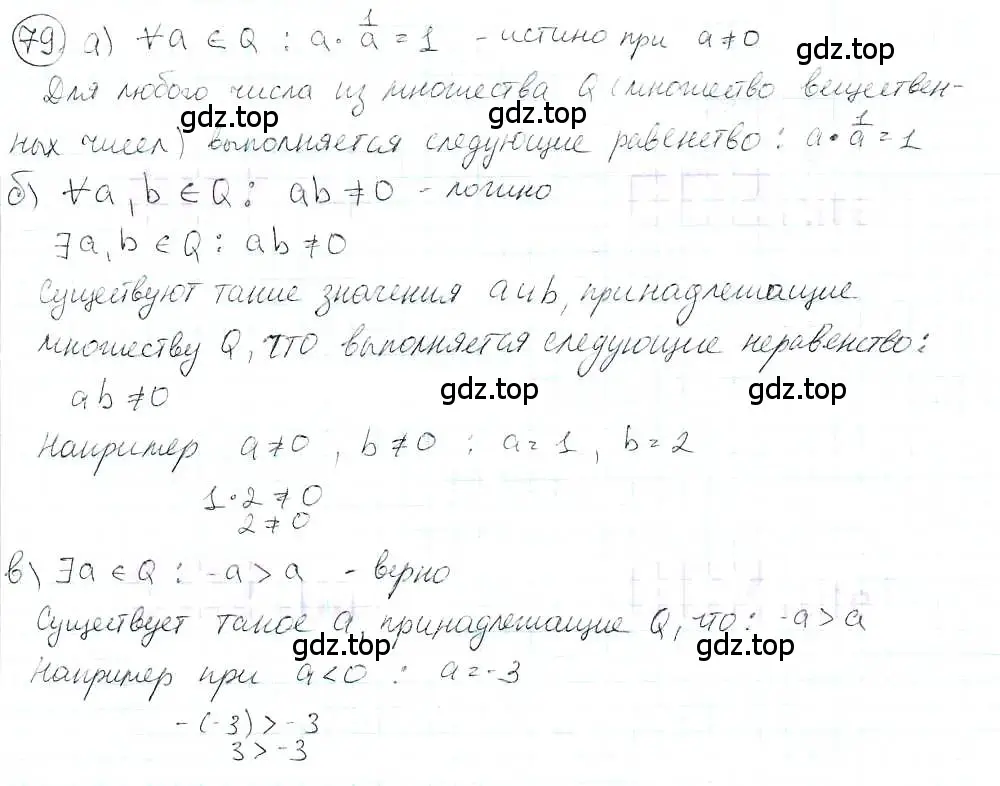 79) а) ∀a ∈ Q : a · 1/a = 1 - истино при a ≠ 0
gdz.top
Для любого числа из множества Q (множество веществен-
gdz.top gdz.top
ных чисел) выполняется следующие равенство : a · 1/a = 1
б) ∀a, b ∈ Q : ab ≠ 0 - логино
∃a, b ∈ Q : ab ≠ 0
Существуют такие значения a и b, принадлежащие
множеству Q, что выполняется следующие неравенство :
ab ≠ 0
gdz.top gdz.top
Например a ≠ 0, b ≠ 0 : a = 1, b = 2
1 · 2 ≠ 0
2 ≠ 0
в) ∃a ∈ Q : -a > a - верно
gdz.top gdz.top
Существует такое a, принадлежащие Q, что : -a > a
gdz.top gdz.top
Например при a < 0 : a = -3
-(-3) > -3
3 > -3